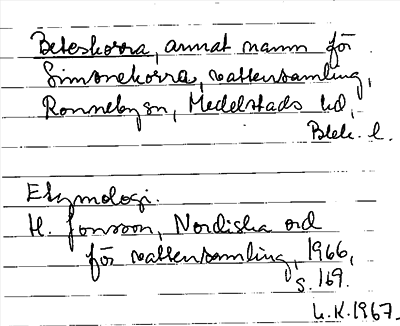 Beteskorra, annat namn för
Simonekorra, vattensamling,
Ronneby sn, Medelstads hd,
Blek. l.
Etymologi.
H. Jonsson, Nordiska ord
för vattensamling, 1966,
s. 169.
L.K. 1967.